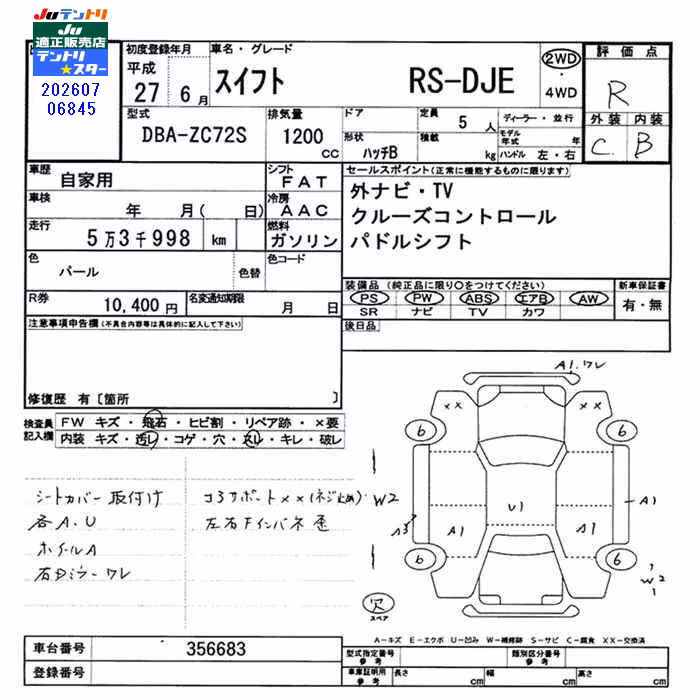 Juテントリ
Ju
適正販売店
テントリ
★スター
202607
06845
初度登録年月
平成
27 6月
車名・グレード
スイフト RS-DJE
2WD
・
4WD
評価点
R
外装 内装
C B
型式
DBA-ZC72S
排気量
1200
CC
ドア
形状
ハッチB
定員
5人
積載
kg
ディーラー・並行
モデル年式 年
ハンドル 左・右
車歴
自家用
シフト
FAT
車検
年 月( 日)
冷房
AAC
走行
5万3千998 km
燃料
ガソリン
色
パール
色替
色コード
R券
10,400円
名変通知期限
月 日
セールスポイント(正常に機能するものに限ります)
外ナビ・TV
クルーズコントロール
パドルシフト
装備品(純正品に限り○をつけてください)
PS PW ABS エアB AW
SR ナビ TV カワ
新車保証書
有・無
後日品
注意事項申告欄(不具合内容等は具体的に記入して下さい)
修復歴 有〔箇所 〕
検査員
記入欄
FW キズ・飛石・ヒビ割・リペア跡・×要
内装 キズ・汚レ・コゲ・穴・スレ・キレ・破レ
シートカバー取付け
各A.U
ホイールA
右Dミラーワレ
コアサポート××(ネジ止め)
左右Fインパネ歪
W2
A1.ワレ
××
××
6
6
U1
A3
A1
A1
A1
6
6
W2
穴
スペア
A-キズ E-エクボ U-凹み W-補修跡 S-サビ C-腐食 XX-交換済
車台番号
356683
登録番号
型式指定番号
参考
類別区分番号
参考
車庫証明用
参考
長さ cm
幅 cm
高さ cm